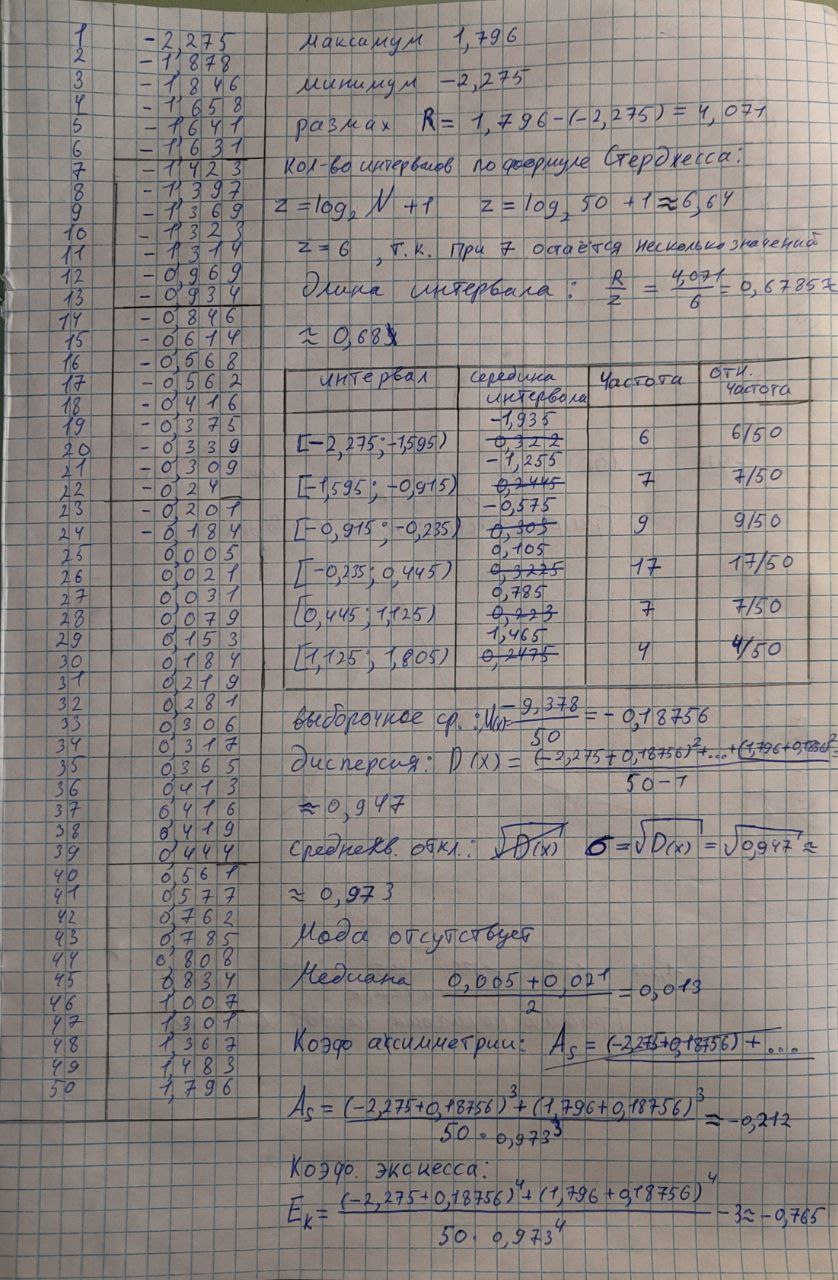 1 -2,275
2 -1,878
3 -1,846
4 -1,658
5 -1,641
6 -1,631
7 -1,423
8 -1,397
9 -1,369
10 -1,323
11 -1,314
12 -0,969
13 -0,934
14 -0,846
15 -0,614
16 -0,568
17 -0,562
18 -0,416
19 -0,375
20 -0,339
21 -0,309
22 -0,24
23 -0,201
24 -0,184
25 0,005
26 0,021
27 0,031
28 0,079
29 0,153
30 0,184
31 0,219
32 0,281
33 0,306
34 0,317
35 0,365
36 0,413
37 0,416
38 0,419
39 0,444
40 0,561
41 0,577
42 0,762
43 0,785
44 0,808
45 0,834
46 1,007
47 1,301
48 1,367
49 1,483
50 1,796
Максимум 1,796
минимум -2,275
размах R = 1,796-(-2,275) = 4,071
кол-во интервалов по формуле Стерджесса:
z = log₂ N + 1 z = log₂ 50 + 1 ≈ 6,64
z = 6 , т.к. при 7 остаётся несколько значений
Длина интервала: R/z = 4,071/6 = 0,6785 ≈
≈ 0,68
интервал середина интервала частота отн. частота
[-2,275; -1,595) -1,935 0,322 6 6/50
[-1,595; -0,915) -1,255 0,2445 7 7/50
[-0,915; -0,235) -0,575 0,303 9 9/50
[-0,235; 0,445) 0,105 0,3225 17 17/50
[0,445; 1,125) 0,785 0,223 7 7/50
[1,125; 1,805) 1,465 0,2475 4 4/50
выборочное ср.: = -9,378/50 = -0,18756
дисперсия: D(x) = (-2,275+0,18756)²+...+(1,796+0,18756)²/50-1 =
≈ 0,947
Среднекв. откл.: √D(x) σ = √D(x) = √0,947 ≈
≈ 0,973
Мода отсутствует
Медиана 0,005+0,021/2 = 0,013
Коэф ассимметрии: As = (-2,275+0,18756) + ...
As = (-2,275+0,18756)³+(1,796+0,18756)³/50·0,973³ ≈ -0,212
Коэф. эксцесса:
Eк = (-2,275+0,18756)⁴+(1,796+0,18756)⁴/50·0,973⁴ - 3 ≈ -0,765